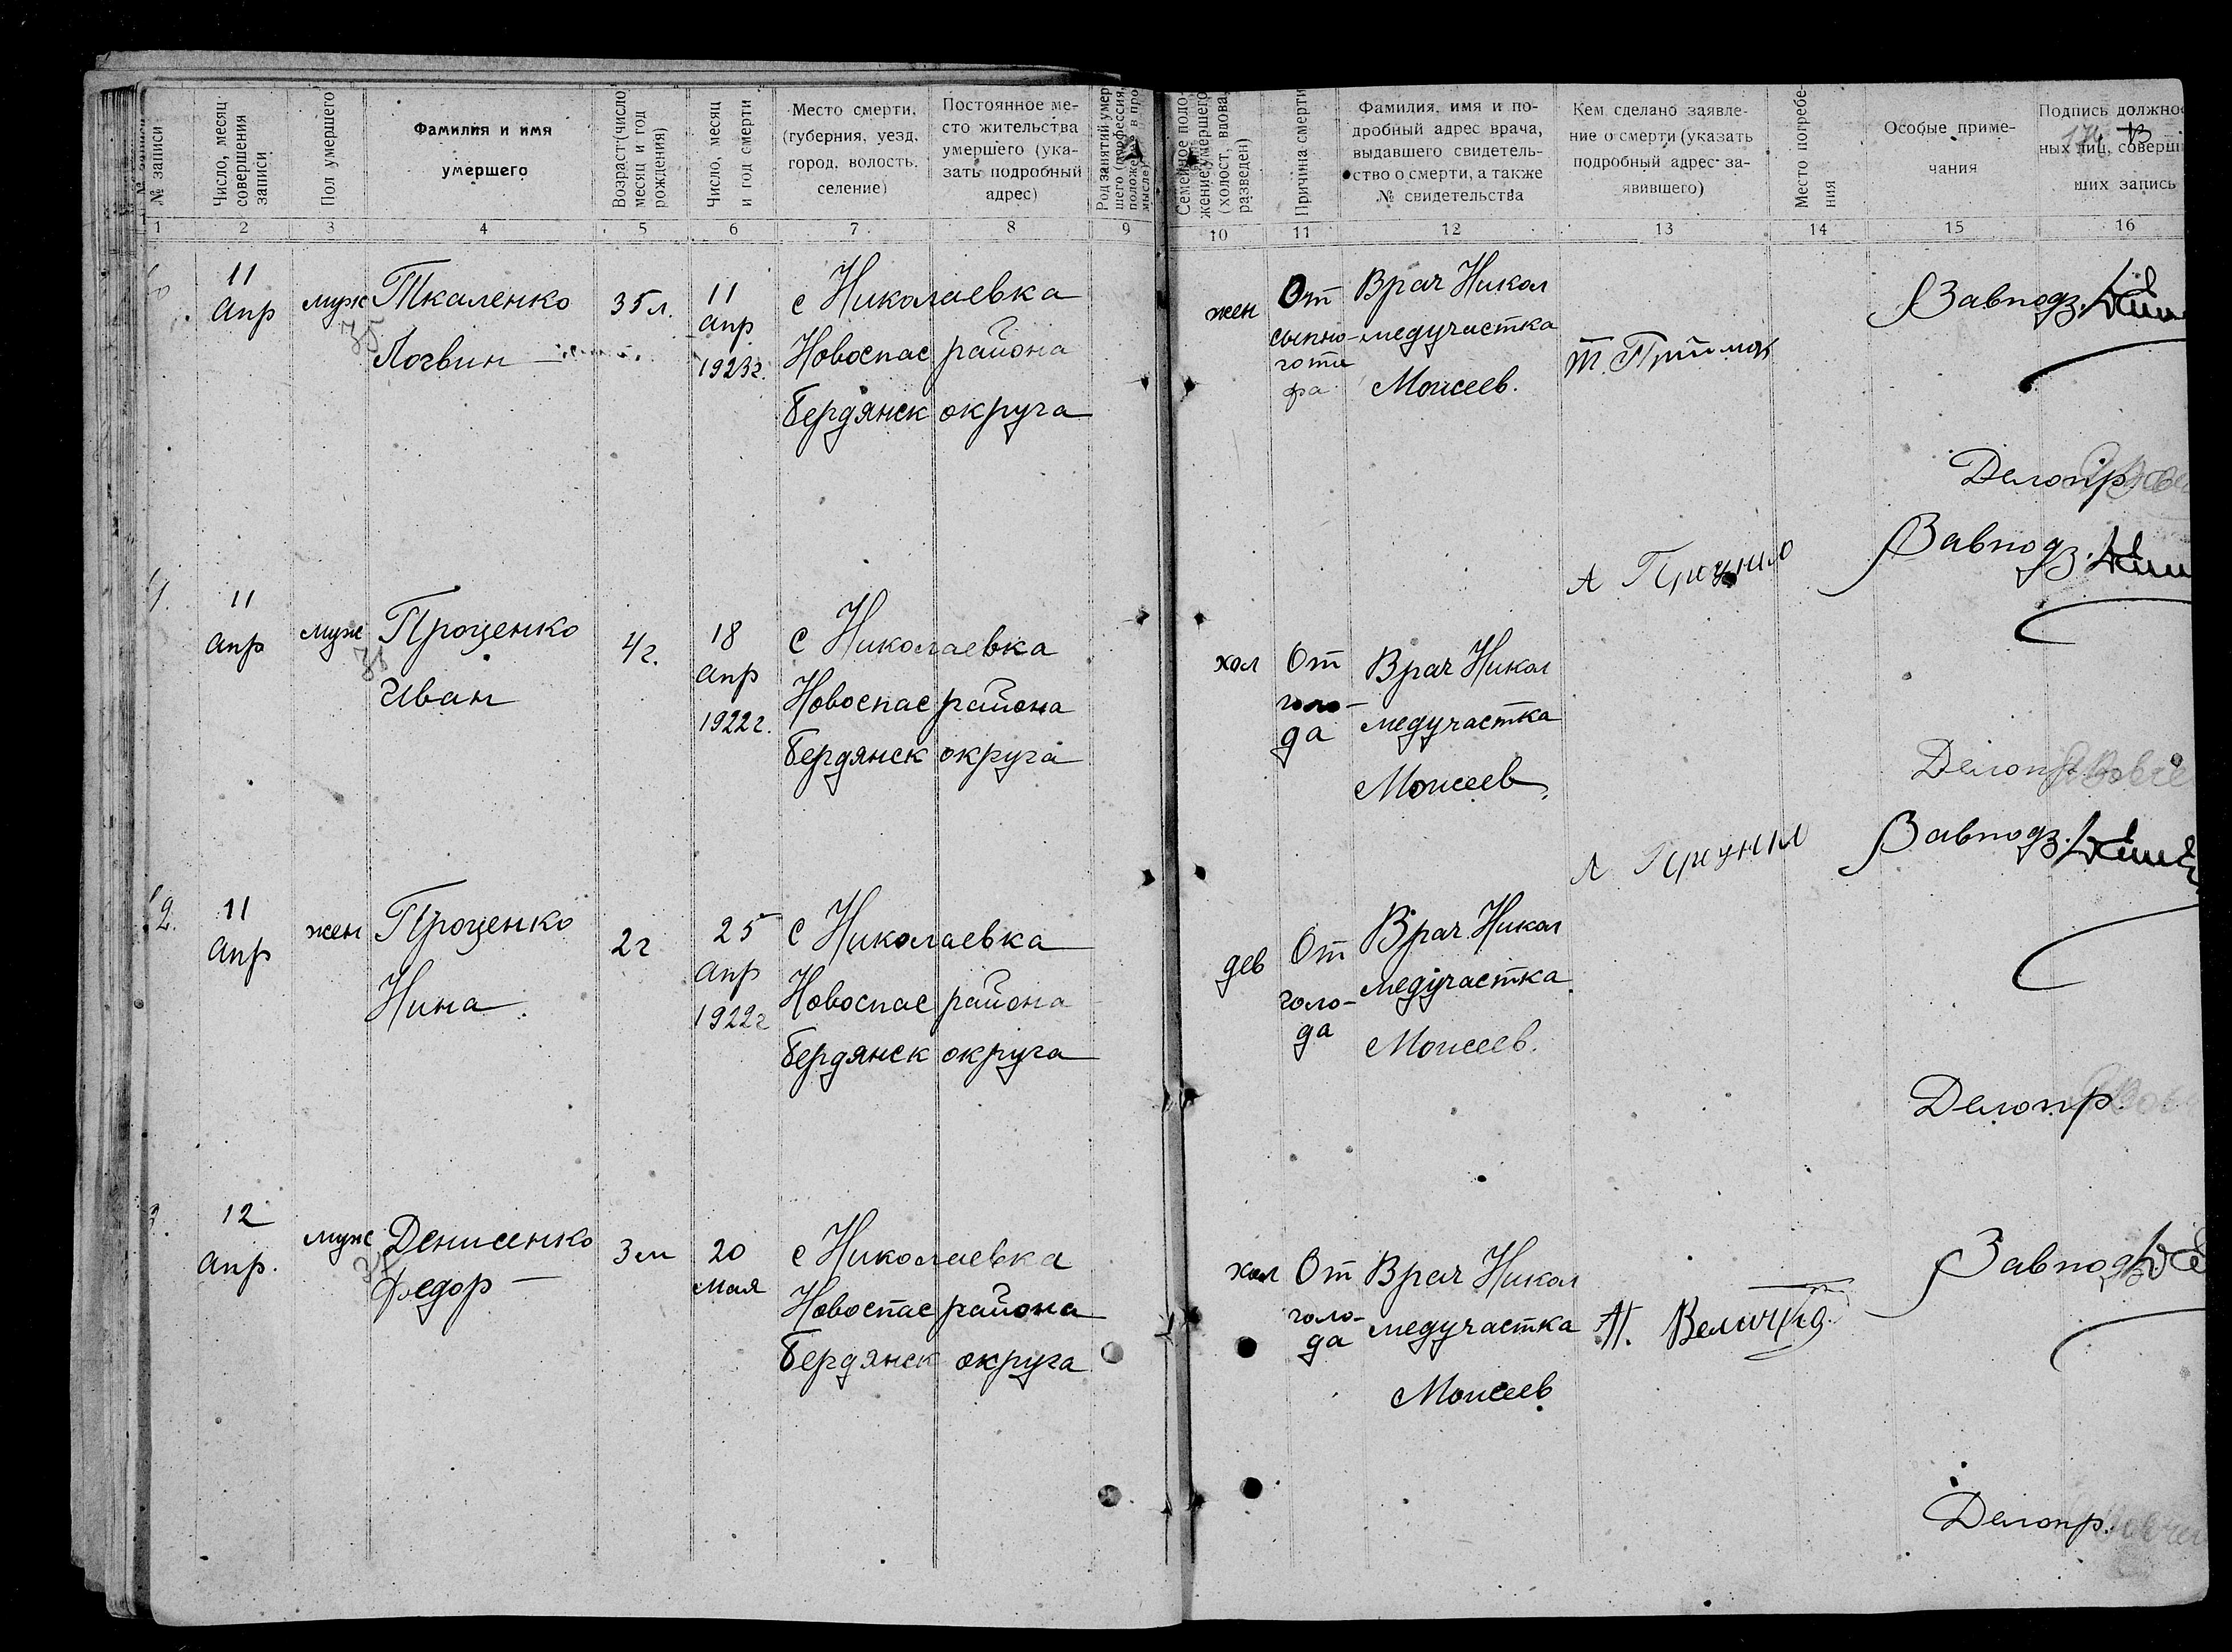 № записи
Число, месяц совершения записи
Пол умершего
Фамилия и имя
умершего
Возраст (число месяц и год рождения)
Число, месяц и год смерти
Место смерти. (губерния, уезд, город, волость, селение)
Постоянное ме-
сто жительства
умершего (ука-
зать подробный
адрес)
Семейное поло-
жение умершего
(холост, вдова,
разведен)
Причина смерти
Фамилия, имя и по-
дробный адрес врача,
выдавшего свидетель-
ство о смерти, а также
№ свидетельства
Кем сделано заявле-
ние о смерти (указать
подробный адрес за-
явившего)
Место погребе-
ния
Особые приме-
чания
Подпись должнос
ных лиц, соверши
ших запись
1 2 3 4 5 6 7 8 9 10 11 12 13 14 15 16
11
Апр
муж
Ткаленко
Логвин
35 л.
11
апр
1923г.
с Николаевка
Новоспас района
Бердянск округа
жен
От
сыпно-
го ти
фа
Врач Никол
медучастка
Моисеев.
Завподз.
Делопр.
11
апр
муж
Проценко
Иван
4г.
18
апр
1922г.
с Николаевка
Новоспас района
Бердянск округа
хол
От
голо-
да
Врач Никол
медучастка
Моисеев
Завподз.
Делопр.
2.
11
апр
жен
Проценко
Нина
2г
25
апр
1922г
с Николаевка
Новоспас района
Бердянск округа
дев
От
голо-
да
Врач Никол
медучастка
Моисеев.
Завподз.
Делопр.
12
апр.
муж
Денисенко
Федор
3м
20
мая
с Николаевка
Новоспас района
Бердянск округа
хол
От
голо-
да
Врач Никол
медучастка
Моисеев
Завподз
Делопр.